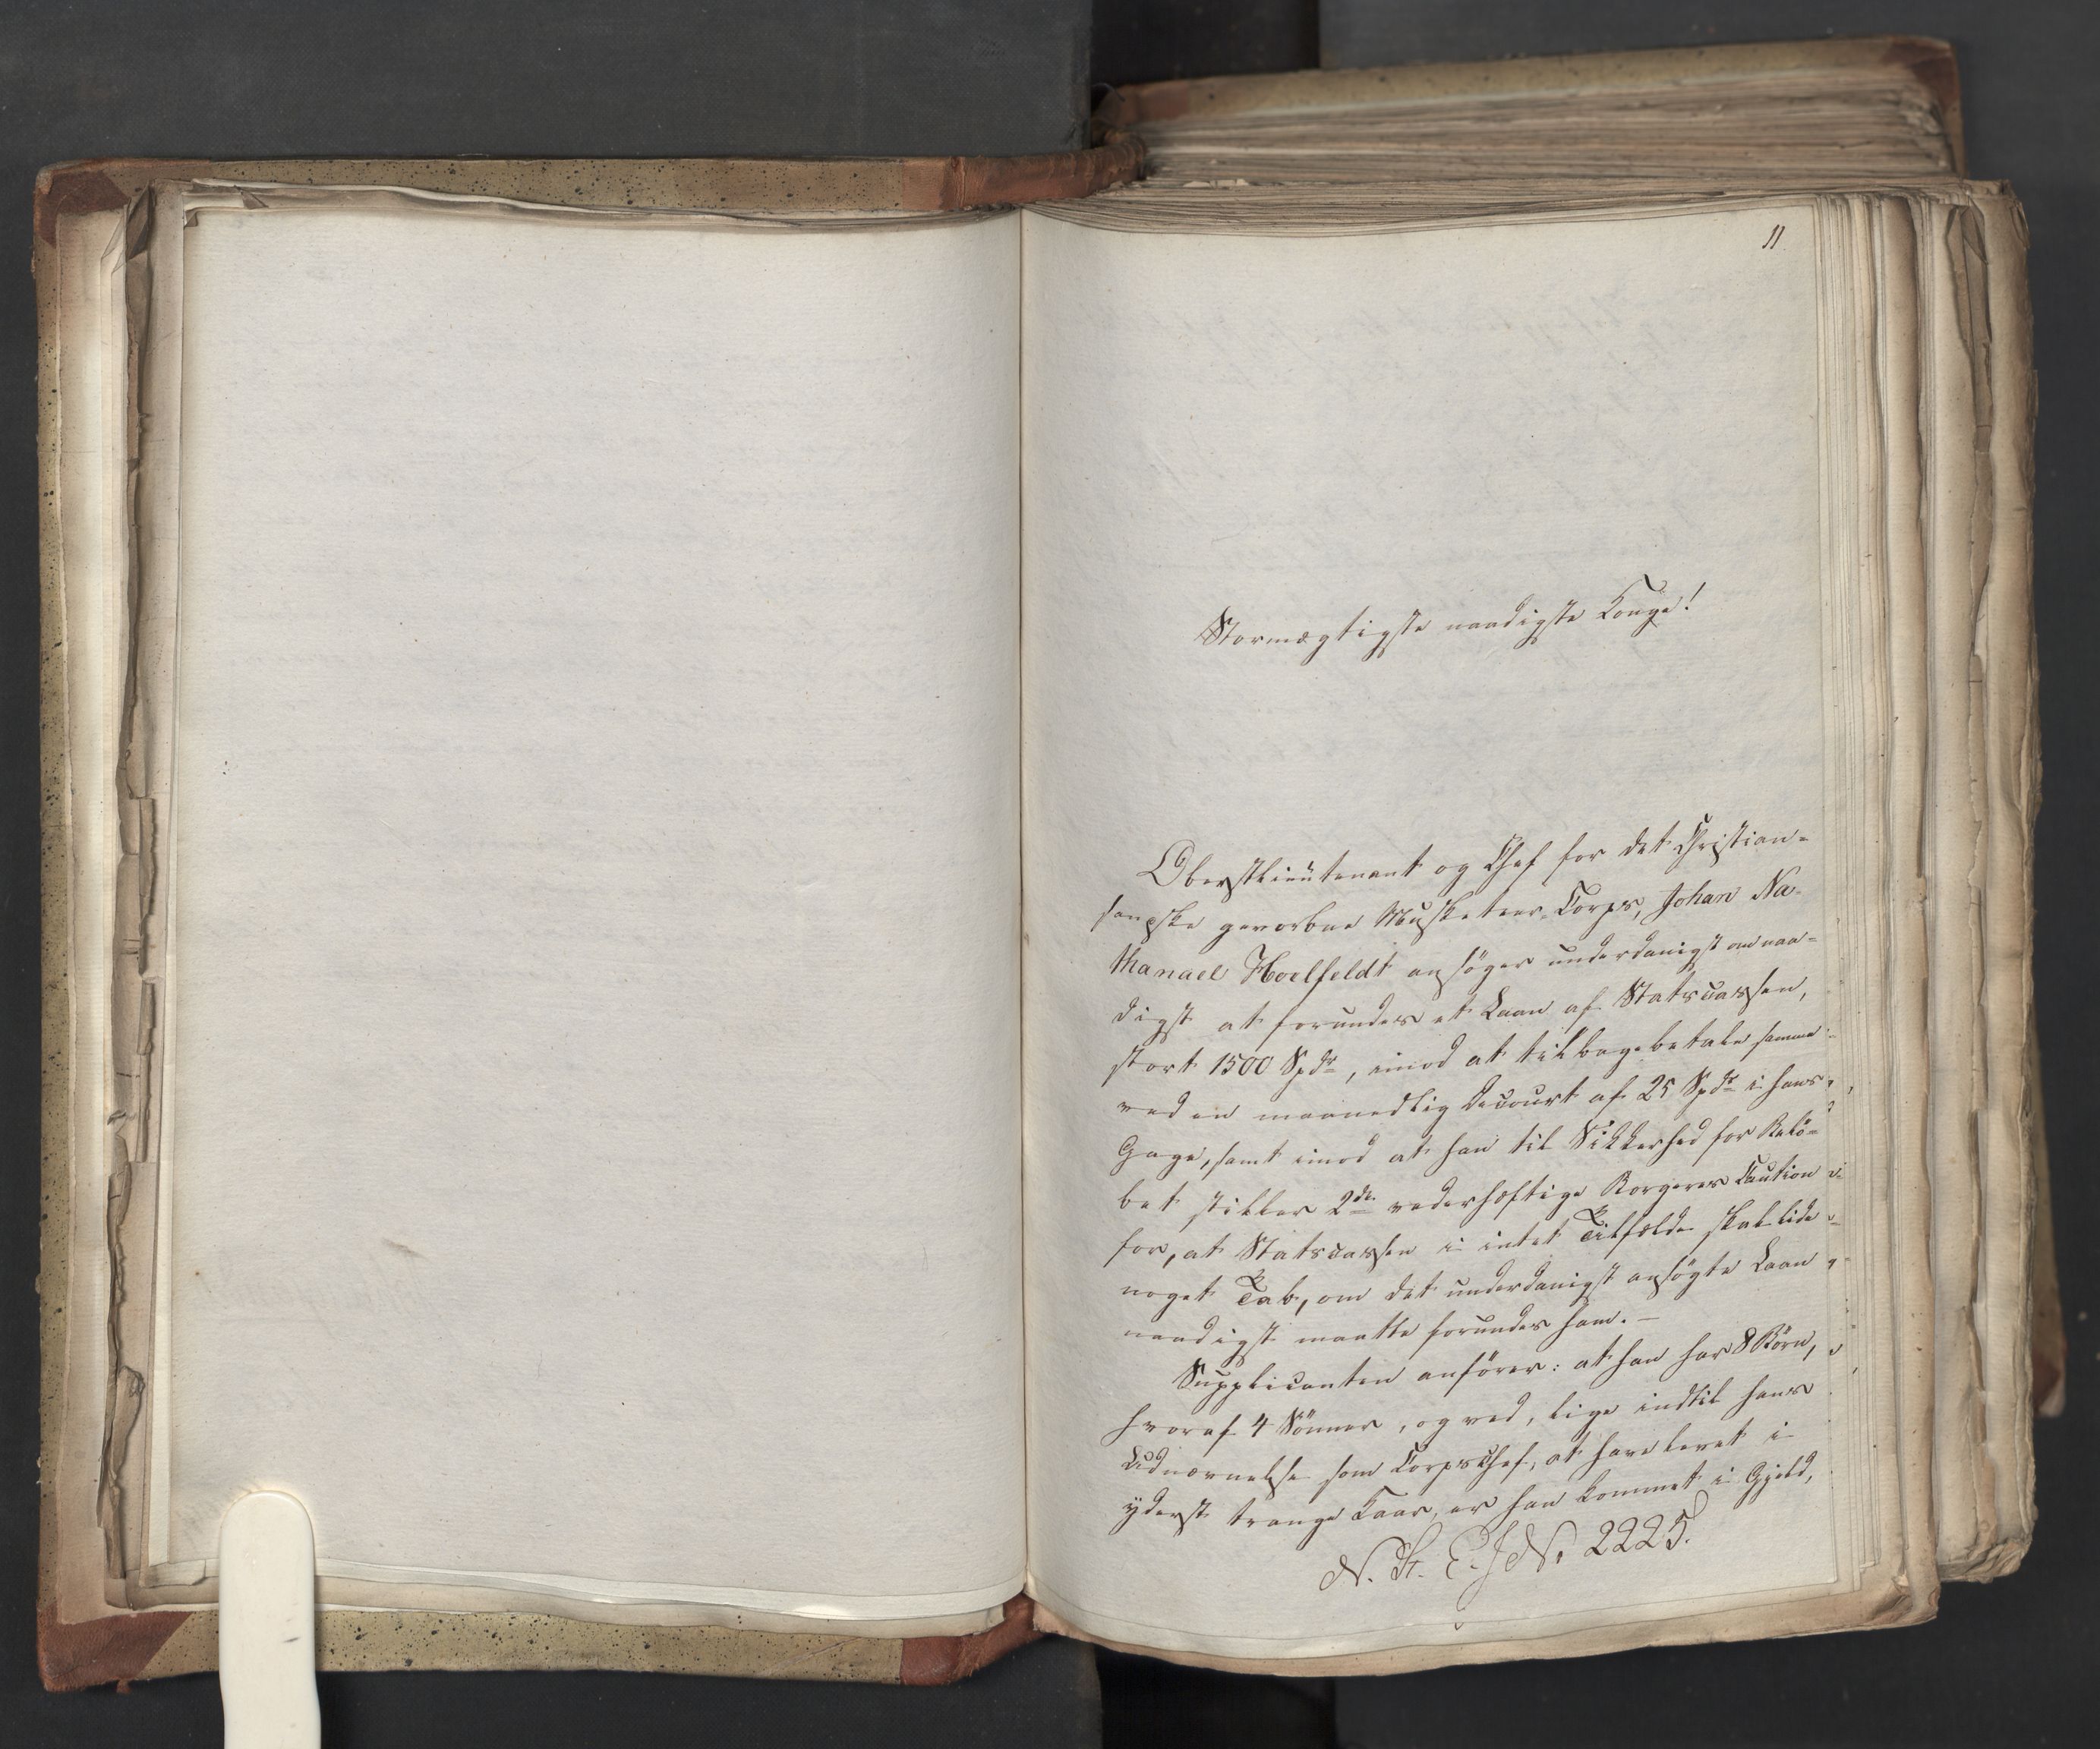 11.
Stormægtigste naadigste Konge!
Oberstlieutenant og Chef for det Christian-
sandske gevorbne Musketeer-Corps, Johan Na-
thanael Hoelfeldt ansøger underdanigst om naa-
digst at forundes et Laan af Statscassen,
stort 1500 Spdr, imod at tilbagebetale samme
ved en maanedlig Decourt af 25 Spdr i hans
Gage, samt imod at han til Sikkerhed for Belø-
bet stiller 2de vederhæftige Borgeres Caution
for, at Statscassen i intet Tilfælde skal lide
noget Tab, om det underdanigst ansøgte Laan
naadigst maatte forundes ham. —
Supplicanten anfører: at han har 8 Børn,
hvoraf 4 Sönner, og ved, lige indtil hans
Udnævnelse som Corpschef, at have levet i
yderst trange Kaar, er han kommet i Gjeld,
N. St. E. J. No 2225.